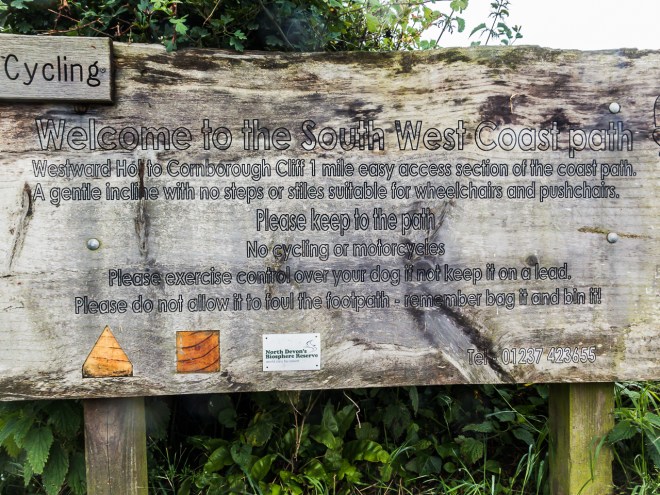 Cycling
Welcome to the South West Coast path
Westward Ho! to Cornborough Cliff 1 mile easy access section of the coast path.
A gentle incline with no steps or stiles suitable for wheelchairs and pushchairs.
Please keep to the path
No cycling or motorcycles
Please exercise control over your dog if not keep it on a lead.
Please do not allow it to foul the footpath - remember bag it and bin it!
North Devon's
Biosphere Reserve
Tel: 01237 423655